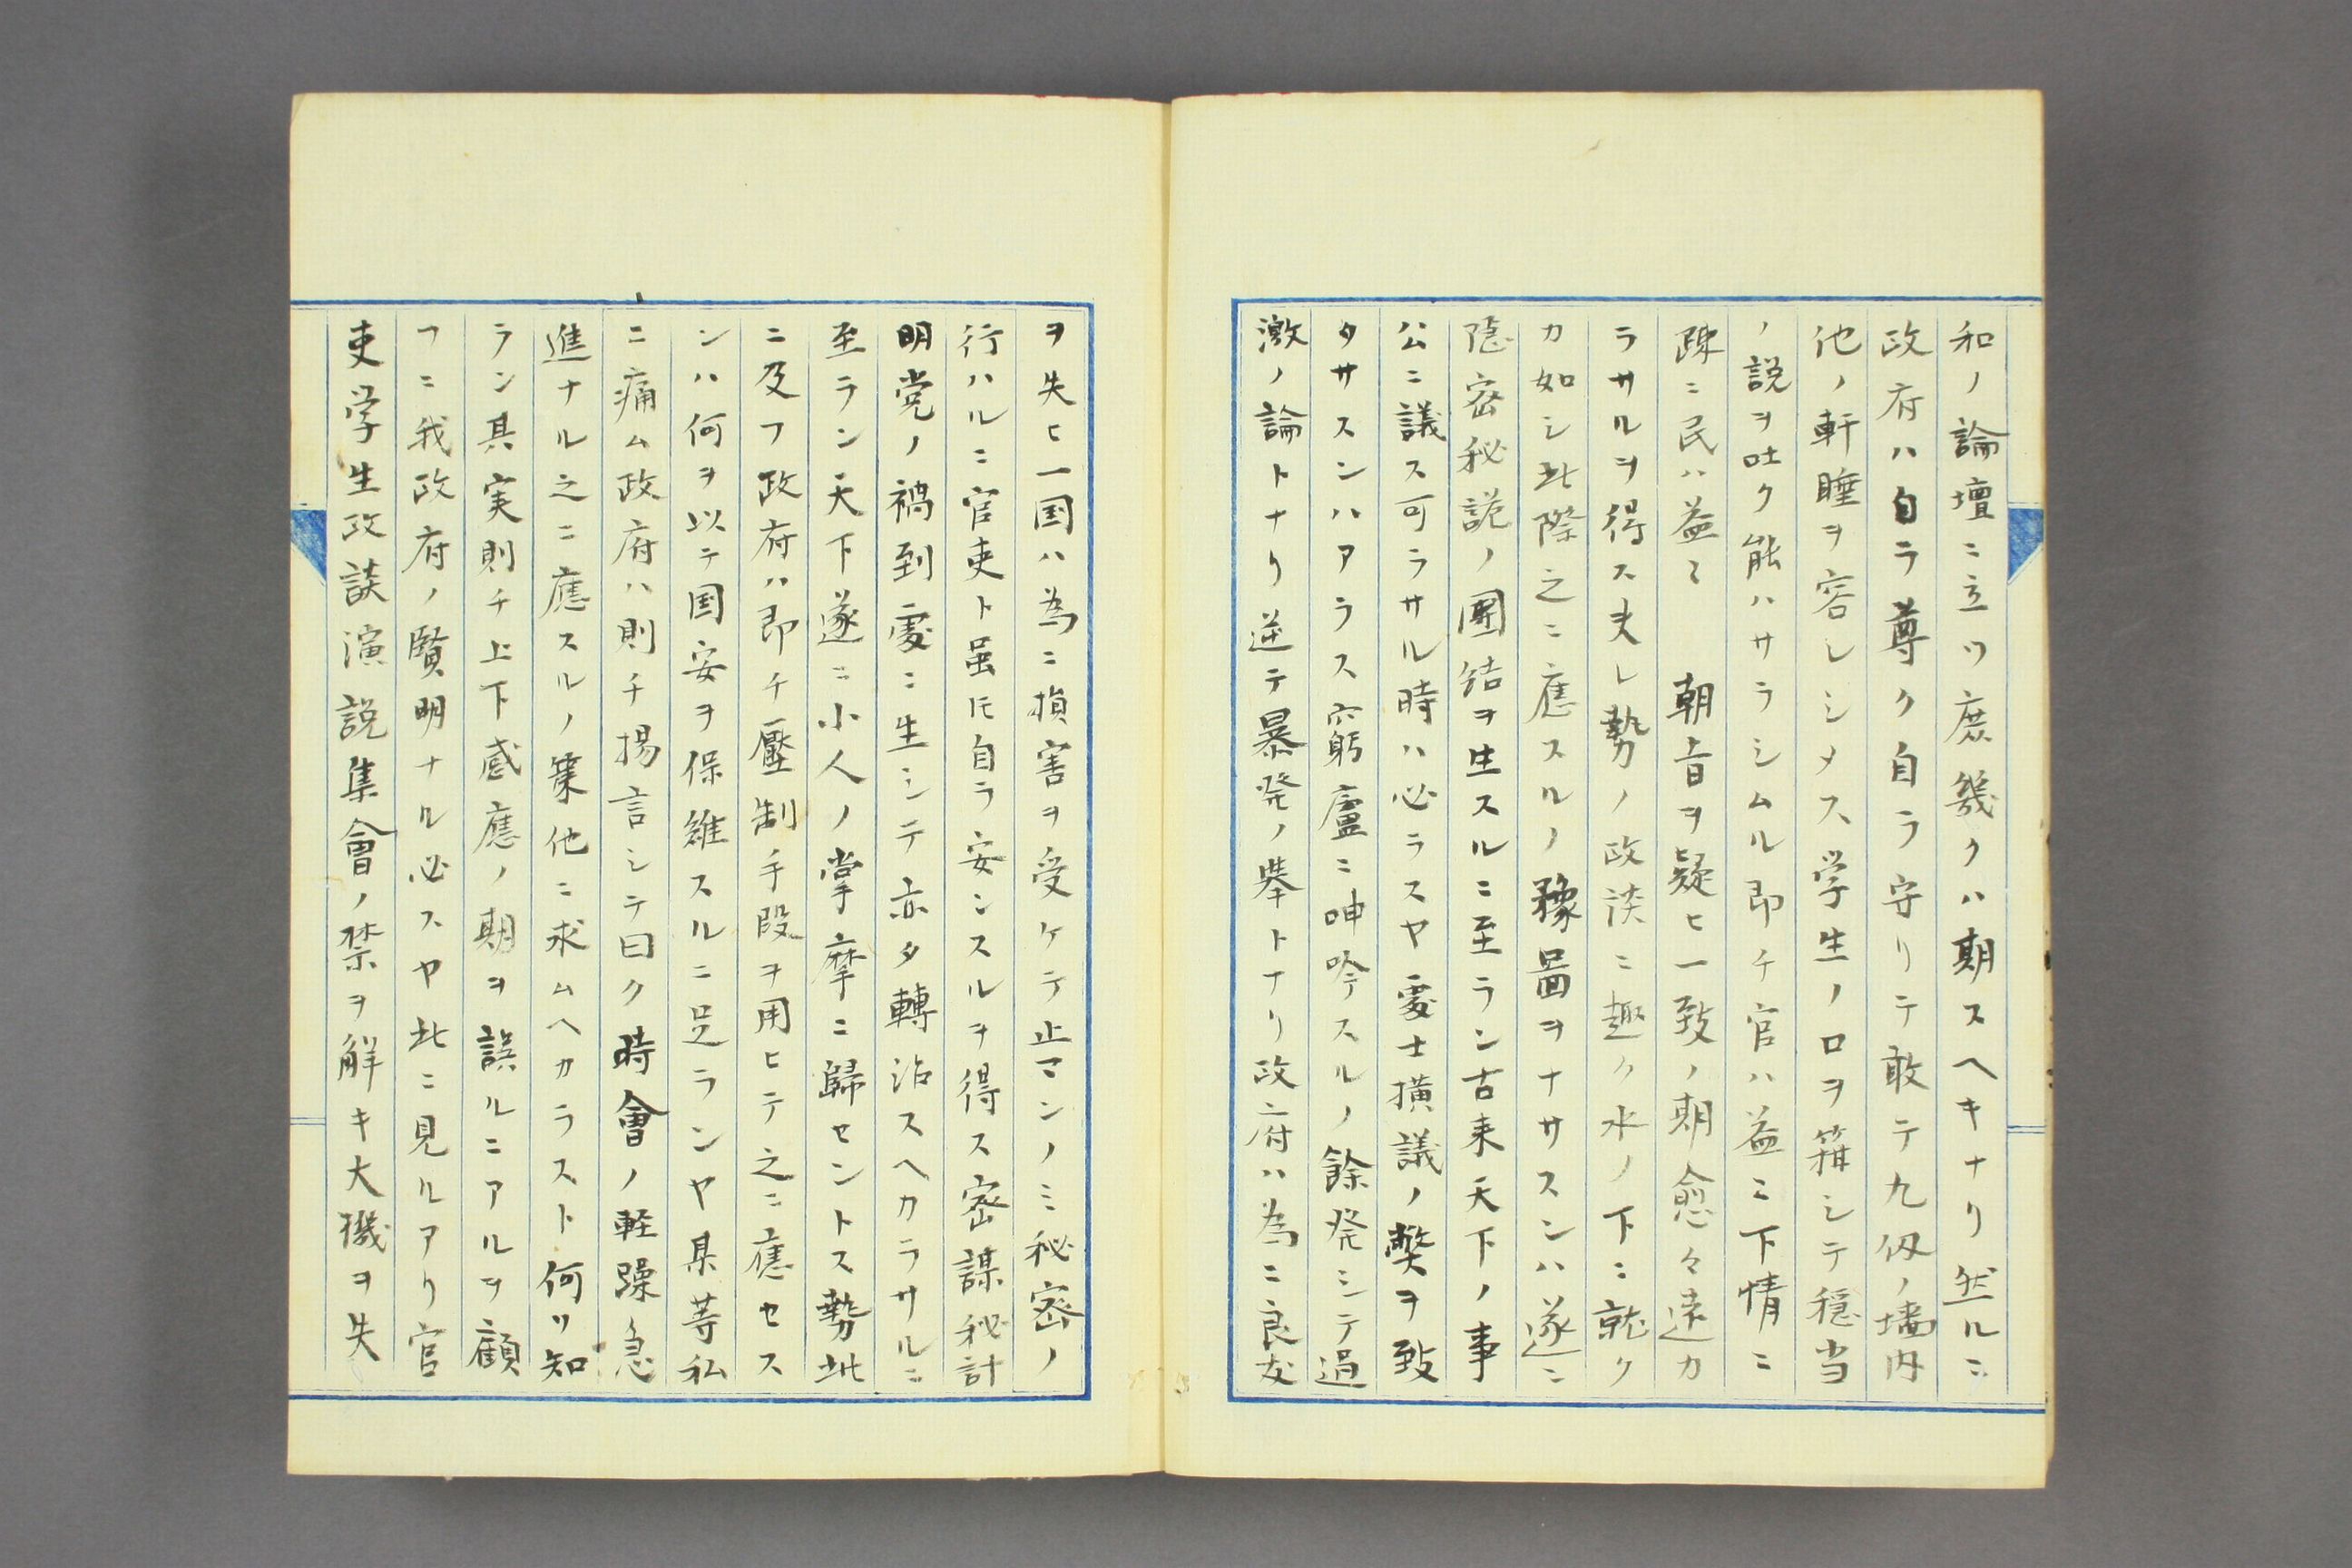 和ノ論壇ニ立ツ庶幾クハ期スヘキナリ然ルニ
政府ハ自ラ尊ク自ラ守リテ敢テ九仭ノ墻内
他ノ軒睡ヲ容レシメス学生ノ口ヲ箝シテ穏当
ノ説ヲ吐ク能ハサラシムル即チ官ハ益ミ下情ニ
疎ニ民ハ益々朝旨ヲ疑ヒ一致ノ期愈々遠カ
ラサルヲ得ス夫レ勢ノ政談ニ趣ク水ノ下ニ就ク
カ如シ此際之ニ應スルノ豫啚ヲナサスンハ遂ニ
隠密秘説ノ團結ヲ生スルニ至ラン古来天下ノ事
公ニ議ス可ラサル時ハ必ラスヤ處士横議ノ弊ヲ致
タサスンハアラス窮廬ニ呻吟スルノ餘発シテ過
激ノ論トナリ迸テ暴発ノ挙トナリ政府ハ為ニ良友
ヲ失ヒ一国ハ為ニ損害ヲ受ケテ止マンノミ秘密ノ
行ハルニ官吏ト虽𪜈自ラ安ンスルヲ得ス密謀秘計
明党ノ禍到處ニ生シテ亦タ轉沾スヘカラサルニ
至ラン天下遂ニ小人ノ掌摩ニ歸セントス勢此
ニ及フ政府ハ即チ壓制手段ヲ用ヒテ之ニ應セス
ンハ何ヲ以テ国安ヲ保維スルニ足ランヤ某等私
ニ痛ム政府ハ則チ揚言シテ曰ク時會ノ軽躁急
進ナル之ニ應スルノ策他ニ求ムヘカラスト何ソ知
ラン其実則チ上下感應ノ期ヲ誤ルニアルヲ顧
フニ我政府ノ賢明ナル必スヤ此ニ見ルアリ官
吏学生政談演説集會ノ禁ヲ解キ大機ヲ失